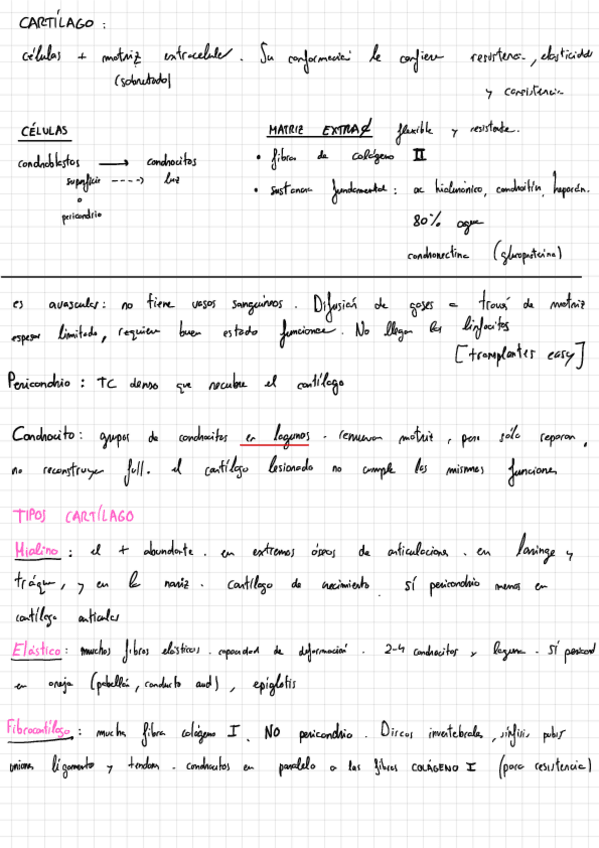 CARTÍLAGO :
células + matriz extracelular. Su conformación le confiere resistenc., elasticidad
(sobretodo)
y consistencia
CÉLULAS
MATRIZ EXTRA¢ flexible y resistente.
condroblastos → condrocitos
• fibra de colágeno II
superficie ----> luz
• sustancia fundamental : ac hialurónico, condroitín, heparán.
pericondrio
80% agua
condronectina (glucoproteína)
es avascular : no tiene vasos sanguíneos. Difusión de gases a través de matriz
espesor limitado, requiere buen estado funcional. No llegan los linfocitos
[transplantes easy]
Pericondrio : TC denso que recubre el cartílago
Condrocito : grupos de condrocitos en lagunas. renuevan matriz, pero sólo reparan,
no reconstruye full. el cartílago lesionado no cumple las mismas funciones
TIPOS CARTÍLAGO
Hialino : el + abundante. en extremos óseos de articulaciones. en laringe y
tráquea, y en la nariz. Cartílago de crecimiento. Sí pericondrio menos en
cartílago articular
Elástico : muchas fibras elásticas. capacidad de deformación. 2-4 condrocitos x laguna. Sí pericond
en oreja (pabellón, conducto aud), epiglotis
Fibrocartílago : mucha fibra colágeno I. NO pericondrio. Discos invertebrales, sínfisis pubis
uniones ligamento y tendón. condrocitos en paralelo a las fibras COLÁGENO I (para resistencia)